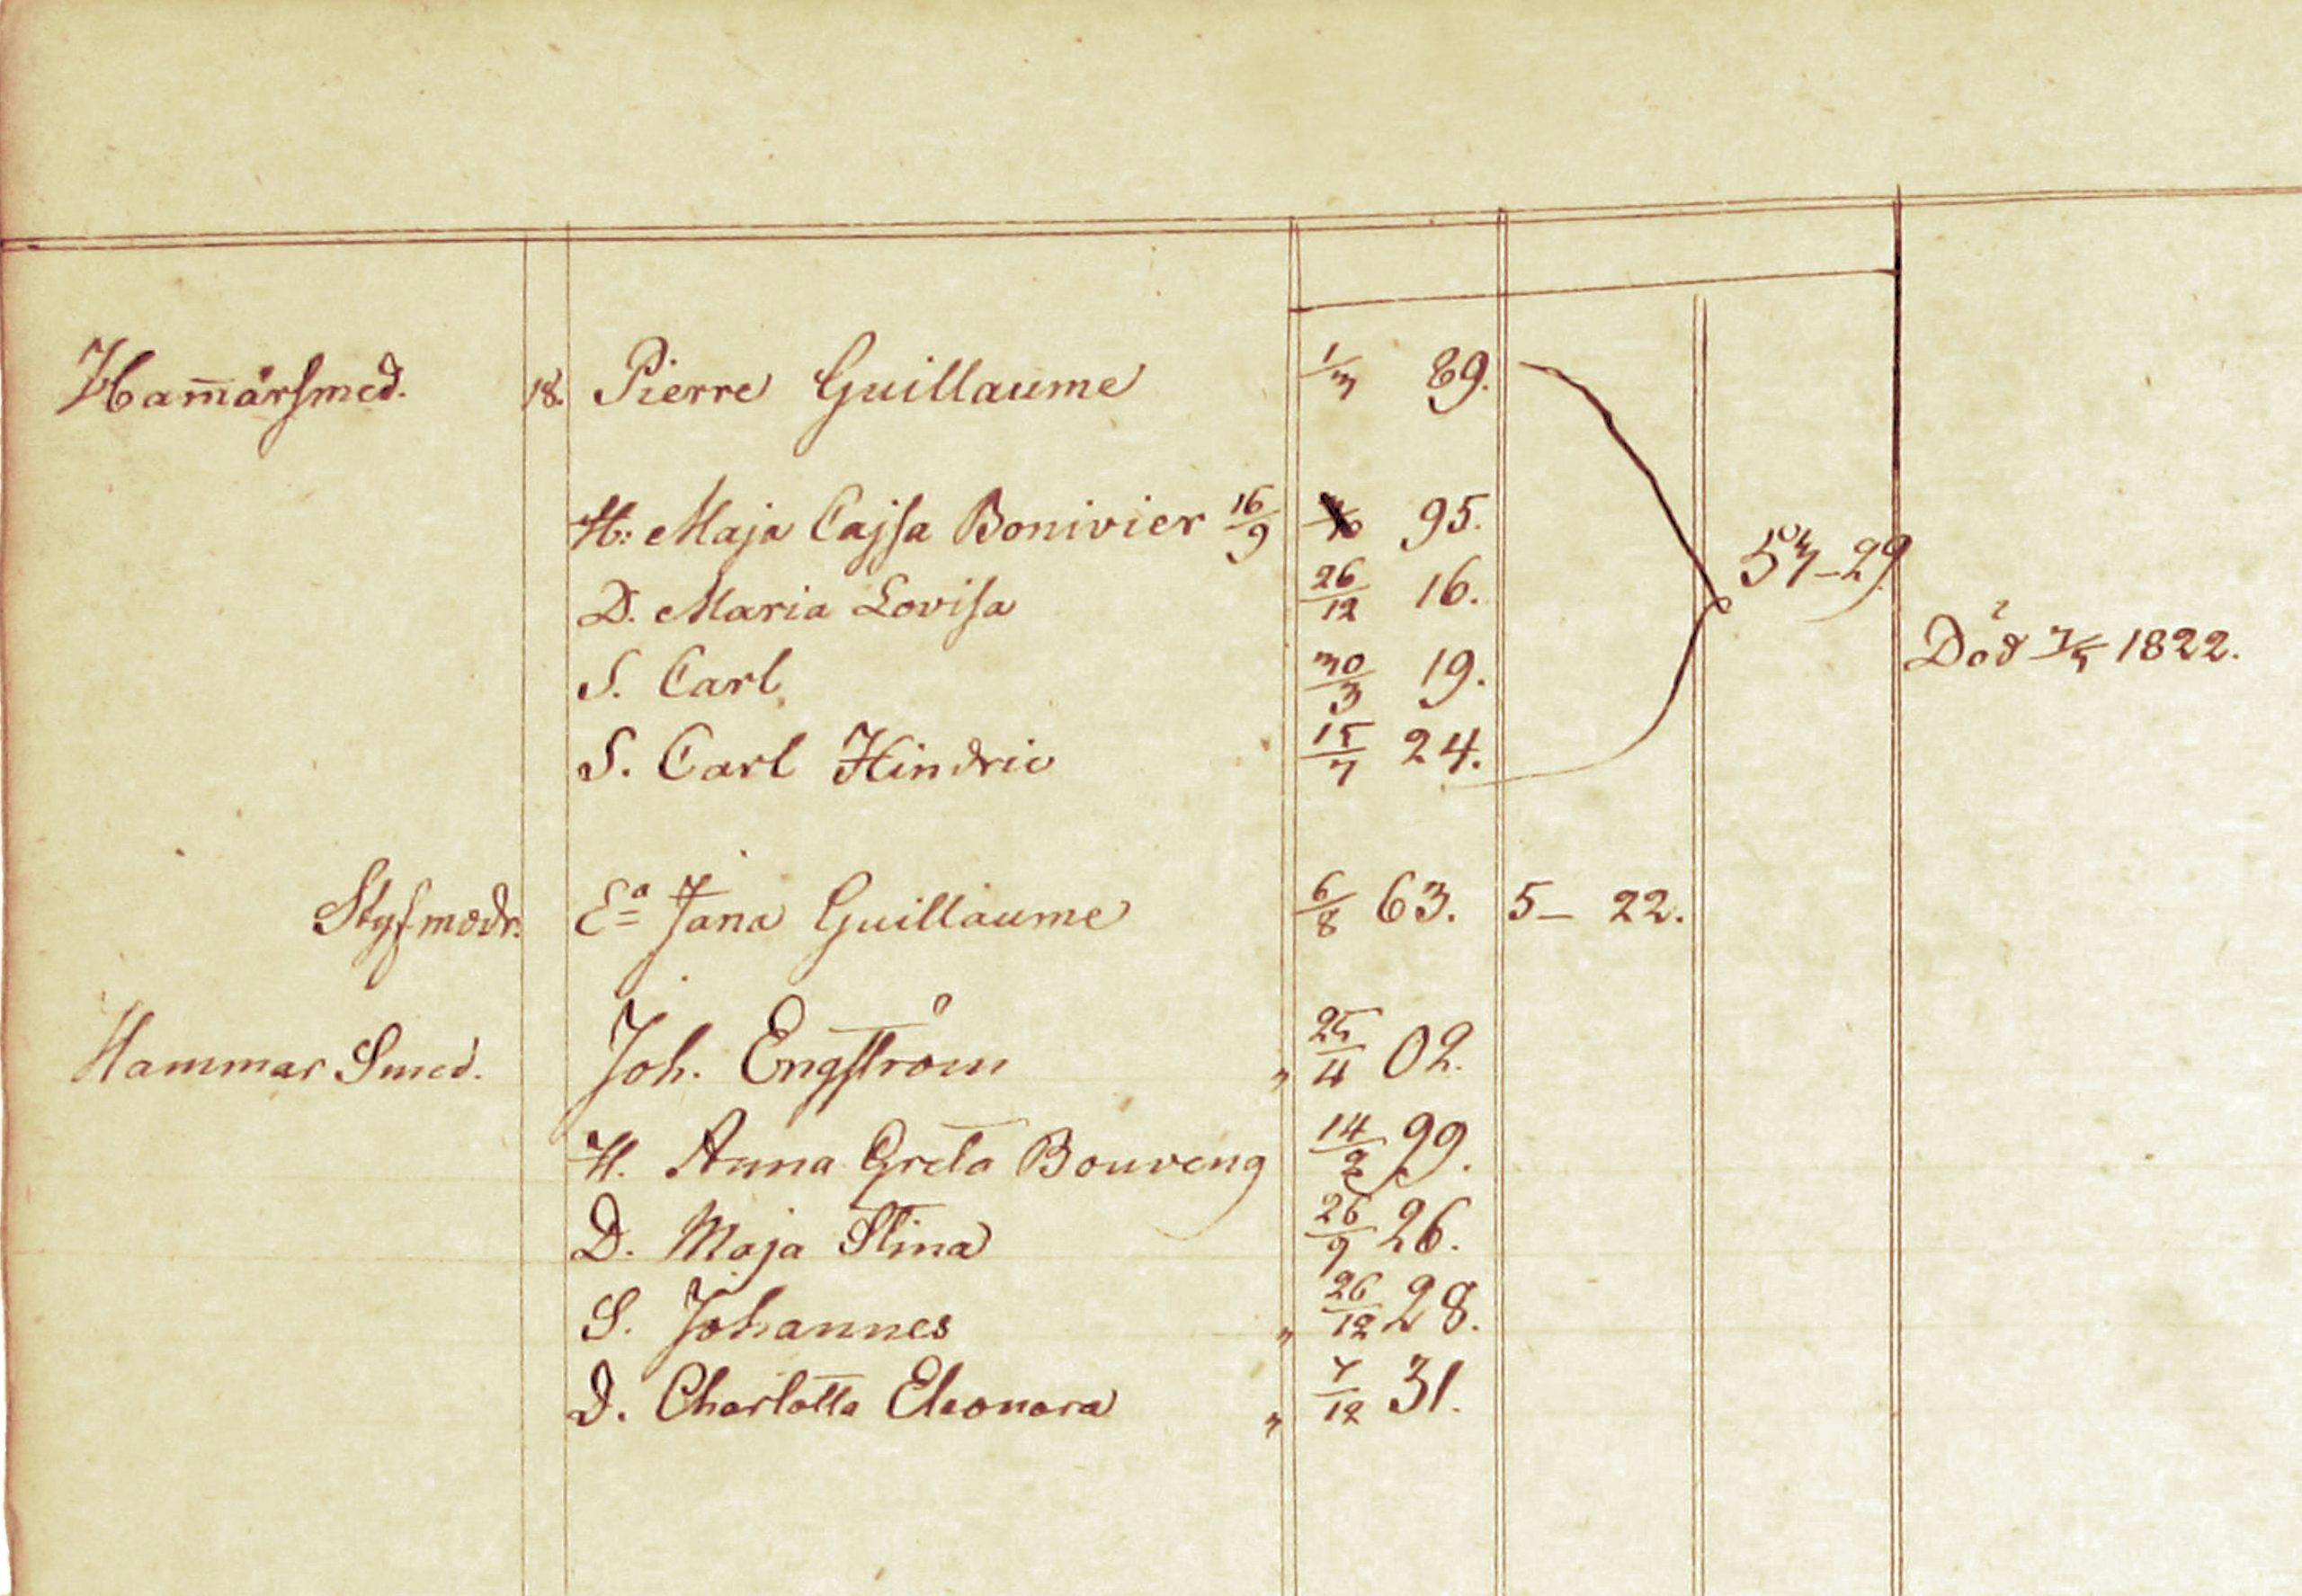 Ham̄arsmed. 18. Pierre Guillaume 1/3 89.
H: Maja Cajsa Bonivier 16/9 95.
53-29
D. Maria Lovisa 26/12 16.
S. Carl 30/3 19. Död 7/5 1822.
S. Carl Hindric 15/7 24.
Styfmodr. Ea Jana Guillaume 6/8 63. 5- 22.
Hammar Smed. Joh. Engström " 25/4 02.
H. Anna Greta Bouveng 14/9 99.
D. Maja Stina 26/9 26.
S. Johannes " 26/12 28.
D. Charlotta Eleonora " 7/12 31.